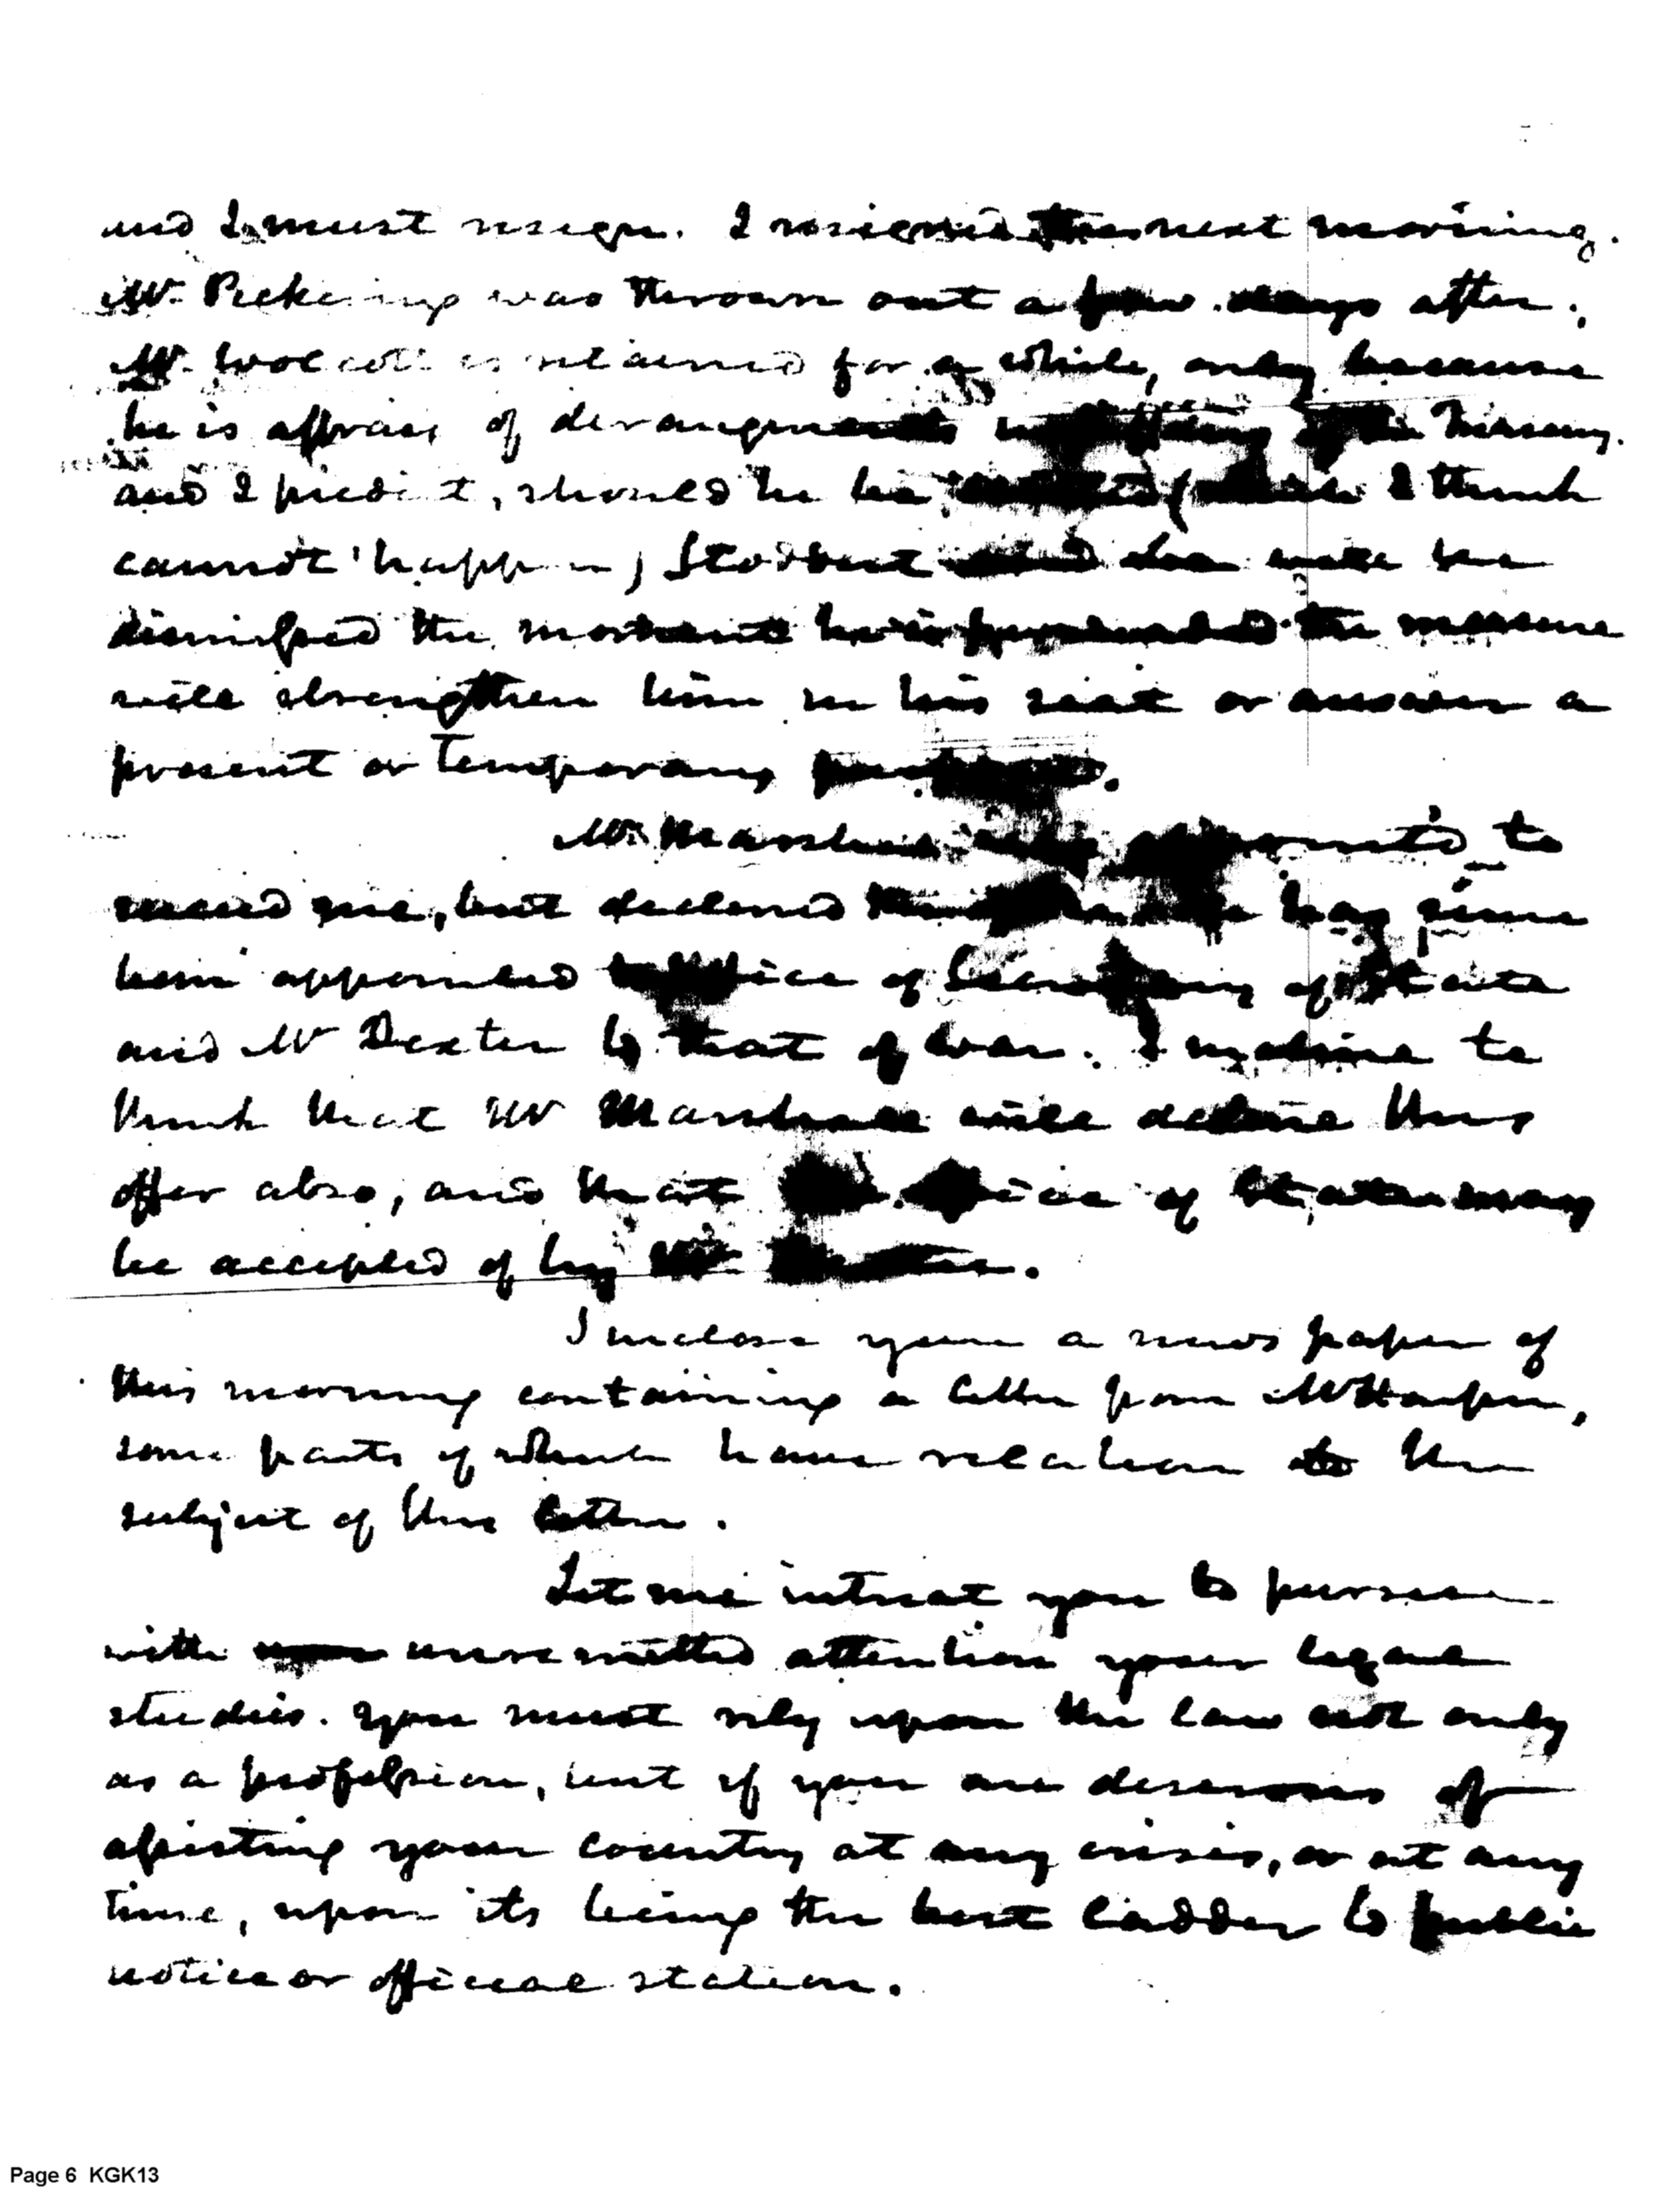 and I must resign. I resigned the next morning.
Mr. Pickering was thrown out a few days after.
Mr. Wolcott is retained for a while, only because
he is affraid of derangements in the Treasury.
and I predict, should he be (which I think
cannot happen) Stoddert will be
dismissed the moment he is persuaded the measure
will strengthen him in his seat or answer a
present or temporary purpose.
Mr. Marshall was appointed to
succeed me, but declined has since
been appointed to office of Secretary of State
and Mr Dexter to that of war. I incline to
think that Mr Marshall will decline this
offer also, and that the office of State may
be accepted of by Mr Dexter.
I inclose you a news paper of
this morning containing a letter from Mr Harper,
some parts of which have relation to the
subject of this letter.
Let me intreat you to pursue
with unremitted attention your legal
studies. You must rely upon the law not only
as a profession, but if you are desirous of
assisting your country at any crisis, or at any
time, upon its being the best ladder to public
notice or official station.
Page 6 KGK13